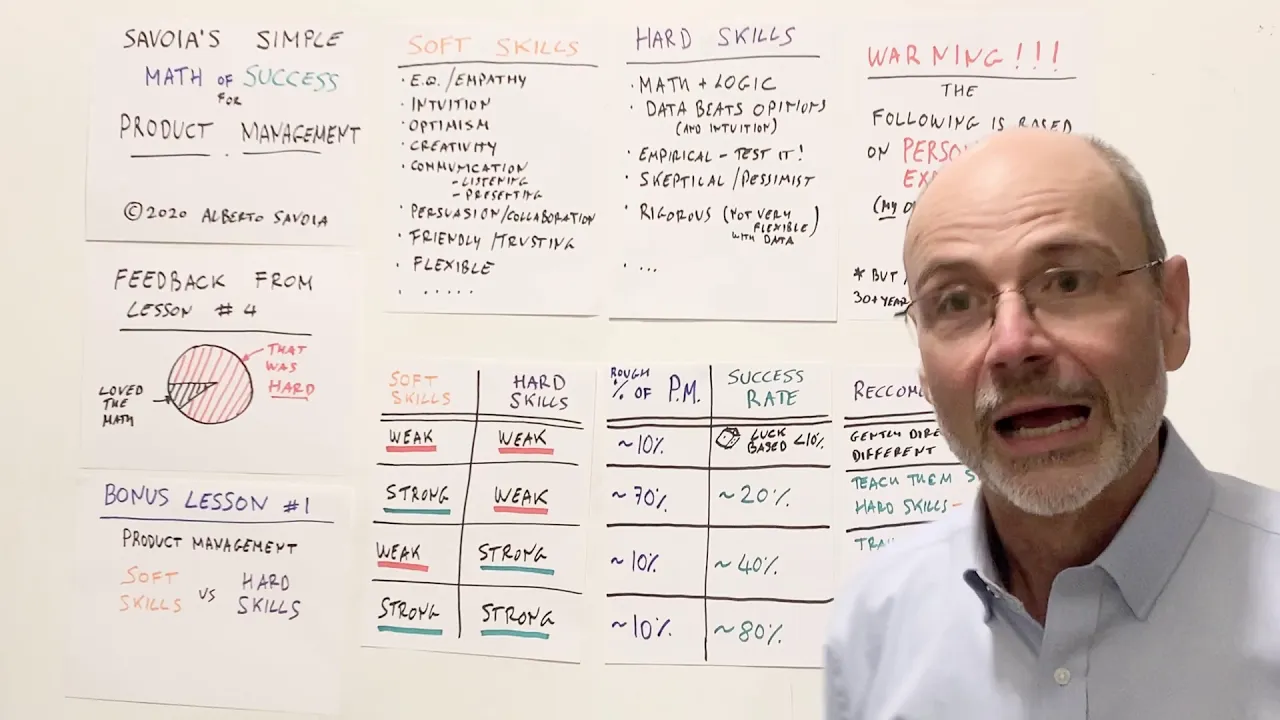 SAVOIA'S SIMPLE
MATH OF SUCCESS
FOR
PRODUCT MANAGEMENT
©2020 ALBERTO SAVOIA
FEEDBACK FROM
LESSON #4
THAT
WAS
HARD
LOVED
THE
MATH
BONUS LESSON #1
PRODUCT MANAGEMENT
SOFT
SKILLS
VS
HARD
SKILLS
SOFT SKILLS
· E.Q./EMPATHY
· INTUITION
· OPTIMISM
· CREATIVITY
· COMMUNICATION
- LISTENING
- PRESENTING
· PERSUASION/COLLABORATION
· FRIENDLY/TRUSTING
· FLEXIBLE
. .....
HARD SKILLS
· MATH + LOGIC
· DATA BEATS OPINIONS
(AND INTUITION)
· EMPIRICAL - TEST IT!
· SKEPTICAL/PESSIMIST
· RIGOROUS (NOT VERY
FLEXIBLE
WITH DATA)
· ...
WARNING!!!
THE
FOLLOWING IS BASED
ON
(MY
* BUT
30+ YEAR
SOFT SKILLS HARD SKILLS
WEAK WEAK
STRONG WEAK
WEAK STRONG
STRONG STRONG
ROUGH % OF P.M. SUCCESS RATE
~10% LUCK BASED <10%
~70% ~20%
~10% ~40%
~10% ~80%
GENTLY
DIFFERENT
TEACH THEM
HARD SKILLS -